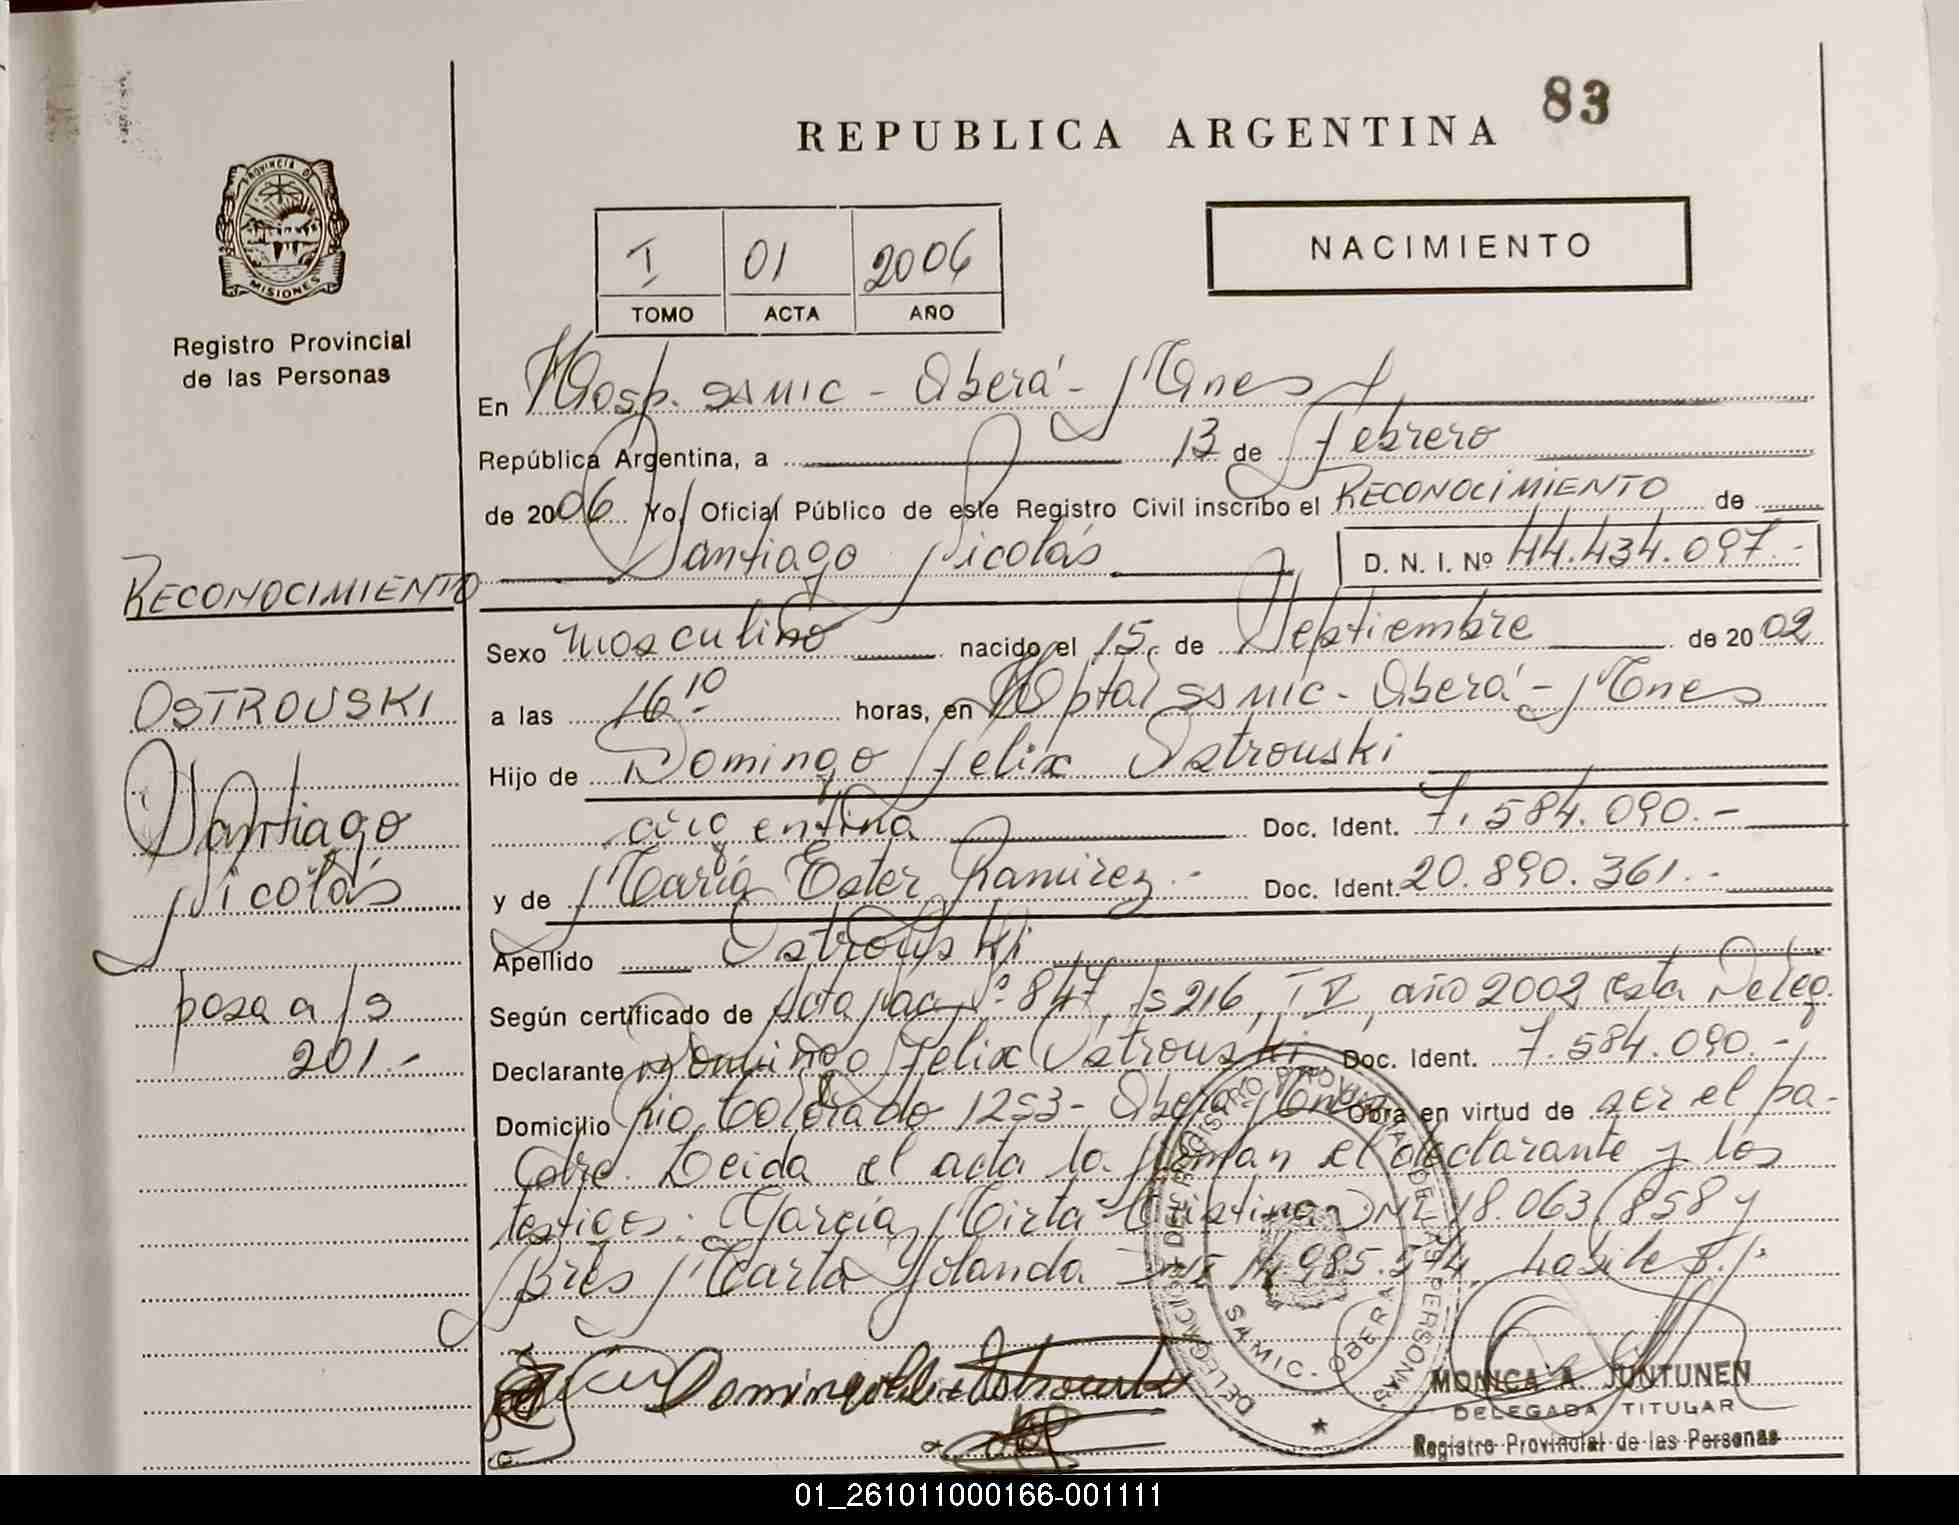 83
REPUBLICA ARGENTINA
PROVINCIA DE
MISIONES
Registro Provincial
de las Personas
I 01 2006
TOMO ACTA AÑO
NACIMIENTO
En Hosp. SAMIC - Oberá - Mnes
República Argentina, a 13 de Febrero
de 2006 Yo, Oficial Público de este Registro Civil inscribo el RECONOCIMIENTO de
Santiago Nicolás D. N. I. Nº 44.434.097.-
Sexo masculino nacido el 15 de Septiembre de 2002
a las 16 10 horas, en Hptal SAMIC - Oberá - Mnes
Hijo de Domingo Felix Ostrouski
argentina Doc. Ident. 7.584.090.-
y de María Ester Ramirez.- Doc. Ident. 20.890.361.-
Apellido Ostrouski
Según certificado de Acta Nac. Nº 847, fs 216, T V, año 2002 esta Deleg.
Declarante Domingo Felix Ostrouski Doc. Ident. 7.584.090.-
Domicilio Rio Colorado 1253 - Oberá - Mnes Obra en virtud de ser el pa-
dre. Leida el acta la firman el declarante y los
testigos: García Mirta Cristina DNI 18.063.858 y
Marta Yolanda DNI 14.985.574, habiles.-
RECONOCIMIENTO
OSTROUSKI
Santiago
Nicolás
pasa a fs
201.-
DELEGACION DEL REGISTRO PROVINCIAL DE LAS PERSONAS
SAMIC. OBERA
MONICA A. JUNTUNEN
DELEGADA TITULAR
Registro Provincial de las Personas
01_261011000166-001111